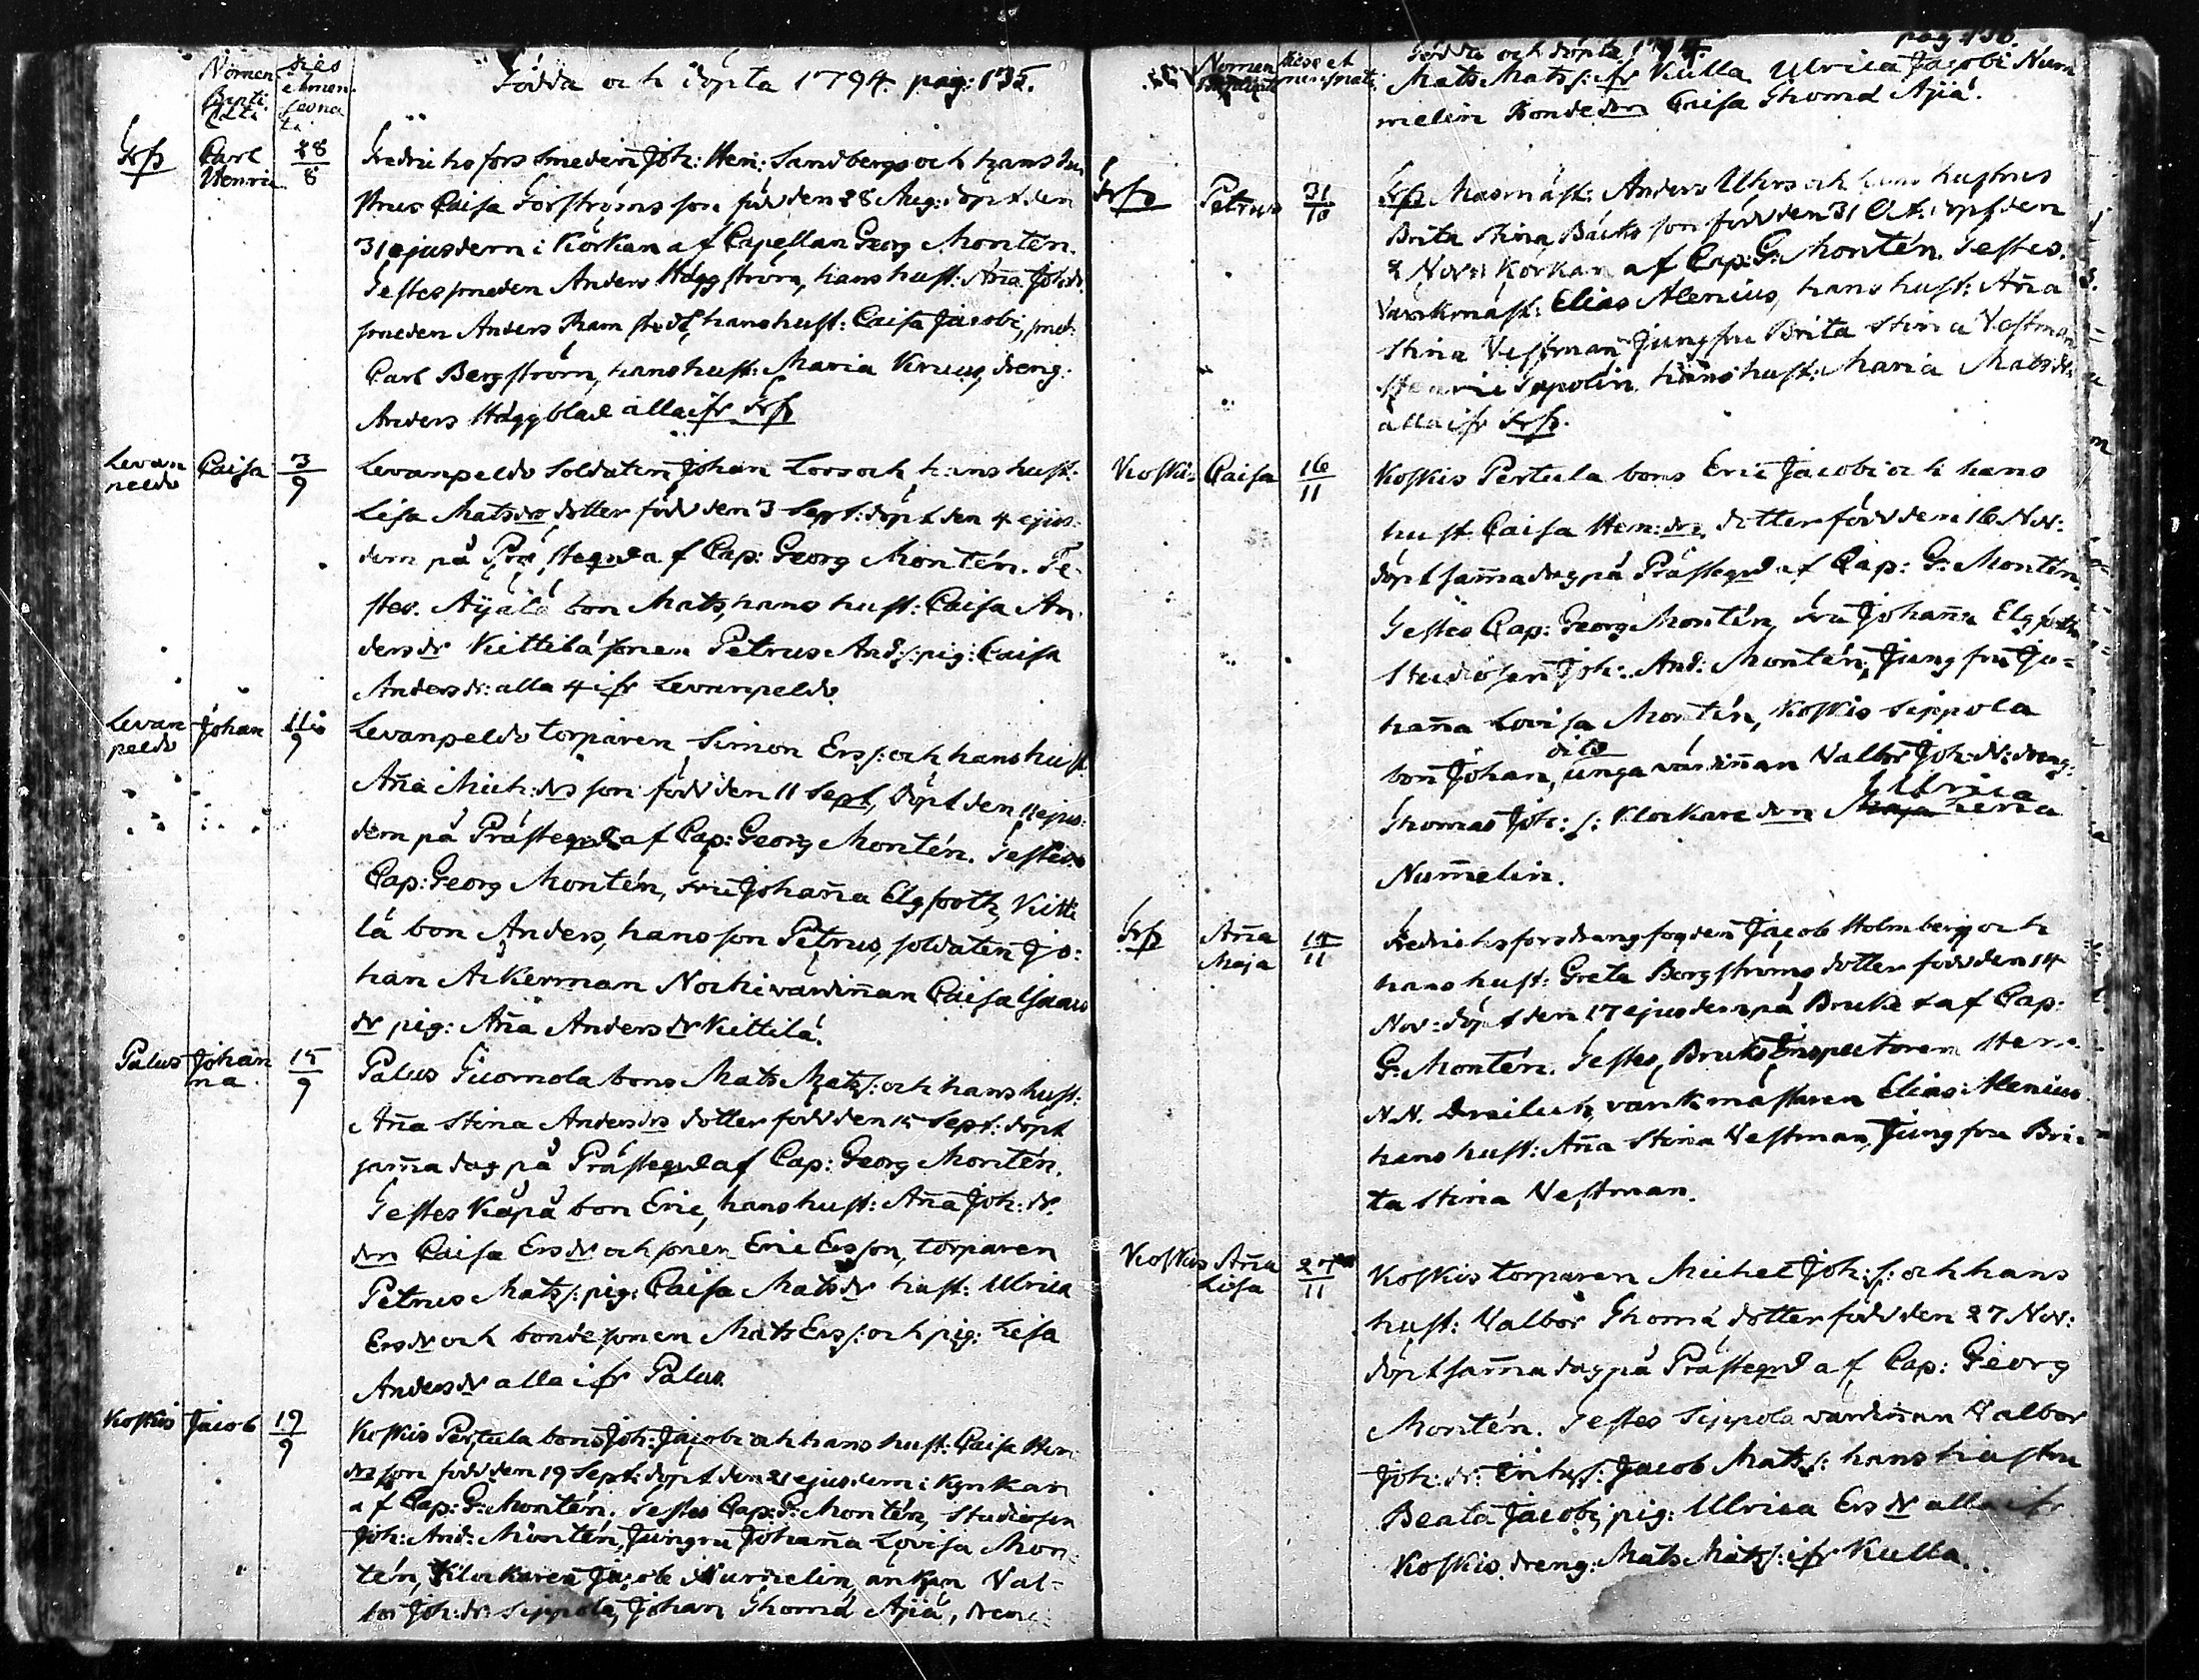 Födda och döpta 1794. pag: 135.
Nomen Dies
Bapti et men-
zati sis na
ti
Frfs Carl 28
Henric 8
Fredrichsfors smeden Joh: Hen: Sandbergs och hans hu
strus Caisa Forströms son född den 28 Aug: döpt den
31 ejusdem i Körkan af Capellan Georg Montén.
Testes smeden Anders Häggström, hans hust: Aña Joh:dr
smeden Anders Ramstedt, hans hust: Caisa Jacobi, smed:
Carl Bergström, hans hust: Maria Kruus, dreng:
Anders Häggblad alla ifr Frfs
Levan Caisa 3
peldo 9
Levanpeldo Soldaten Johan Loos och hans hust:
Lisa Matsdrs dotter född den 3 Sept: döpt den 4 ejus-
dem på Prästegrd af Cap: Georg Montén. Te-
stes. Äjälä bon Mats, hans hust: Caisa An-
dersdr Kittilä sonen Petrus And:s: pig: Caisa
Andersdr: alla 4 ifr Levanpeldo.
Levan Johan 11
peldo 9
Levanpeldo torparen Simon Ers s: och hans hust
Aña Mich:drs son född den 11 Sept, döpt den 11 ejus-
dem på Prästegrd af Cap: Georg Montén. Testes
Cap: Georg Montén, fru Johaña Elgfooth, Kitti
lä bon Anders, hans son Petrus, soldaten Jo:
han Akerman Nochi värdiñan Caisa Isaacs
dr pig: Aña Andersdr Kittilä.
Palus Johan 15
na. 9
Palus Tuomola bons Mats Mats s: och hans hust:
Aña Stina Andersdrs dotter född den 15 Sept: döpt
sam̃a dag på Prästegrd af Cap: Georg Montén.
Testes Kåpå bon Eric, hans hust: Aña Joh: dr.
drn Caisa Ersdr och sonen Eric Ersson, torparen
Petrus Mats s: pig: Caisa Matsdr hust: Ulrica
Ersdr och bondesonen Mats Ers s: och pig: Lisa
Andersdr alla ifr Palus.
Koskis Jacob 19
9
Koskis Pertula bons Joh: Jacobi och hans hust: Caisa Hen
drs son född den 19 Sept: döpt den 21 ejusdem i Kyrkan
af Cap: G: Montén. Testes Cap: G: Montén, Studiosen
Joh: And: Montén, Jungfru Johaña Lovisa Mon-
tén, Klockaren Jacob Num̃elin, ankan Val-
bor Joh:dr Seppola, Johan Thomæ Ajiä, dreng:
pag 136.
Födda och döpta 1794.
Nomen Dies et
mensis nati
Mats Mats s: ifr Kulla Ulrica Jacobi Num
melin Bonde drn Caisa Thomæ Ajiä.
Frfs Petrus 31
10
Frfs Masmäst: Anders Uhrs och hans hustrus
Brita Stina Bäcks son född den 31 Oct: döpt den
2 Nov: i Körkan af Cap: G: Montén. Testes.
Värkmäst: Elias Alenius, hans hust: Aña
Stina Vestman Jungfru Brita Stina Vestman
Henric Sepolin, hans hust: Maria Matsdr
alla ifr Frfs.
Koskis Caisa 16
11
Koskis Pertula bons Eric Jacobi och hans
hust Caisa Hen:drs dotter född den 16 Nov:
döpt sam̃a dag på Prästegrd af Cap: G: Montén.
Testes Cap: Georg Montén, fru Johaña Elgfooth
Studiosen Joh: And: Montén, Jungfru Jo=
haña Lovisa Montén, Koskis Seppola
bon Johan, dito unga värdiñan Valbor Joh:dr: dreng:
Thomas Joh: s: Klockare drn Ulrica Lena
Num̃elin.
Frfs Aña 14
Maja 11
Fredrichsfors drängfogden Jacob Holmberg och
hans hust: Greta Bergströms dotter född den 14
Nov: döpt den 17 ejusdem på Bruket af Cap:
G: Montén. Testes, Bruks Inspectoren Herr
N.N. Dreilick, värkmästaren Elias Alenius
hans hust: Aña Stina Vestman, Jungfru Bri-
ta Stina Vestman.
Koskis Aña 27
Lisa 11
Koskis torparen Michel Joh: s: och hans
hust: Valbor Thomæ dotter född den 27 Nov:
döpt sam̃a dag på Prästegrd af Cap: Georg
Montén. Testes Seppola värdiñan Valbor
Joh: dr: Jacob Mats s: hans hustru
Beata Jacobi, pig: Ulrica Ersdr alla ifr
Koskis, dreng: Mats Mats s: ifr Kulla.